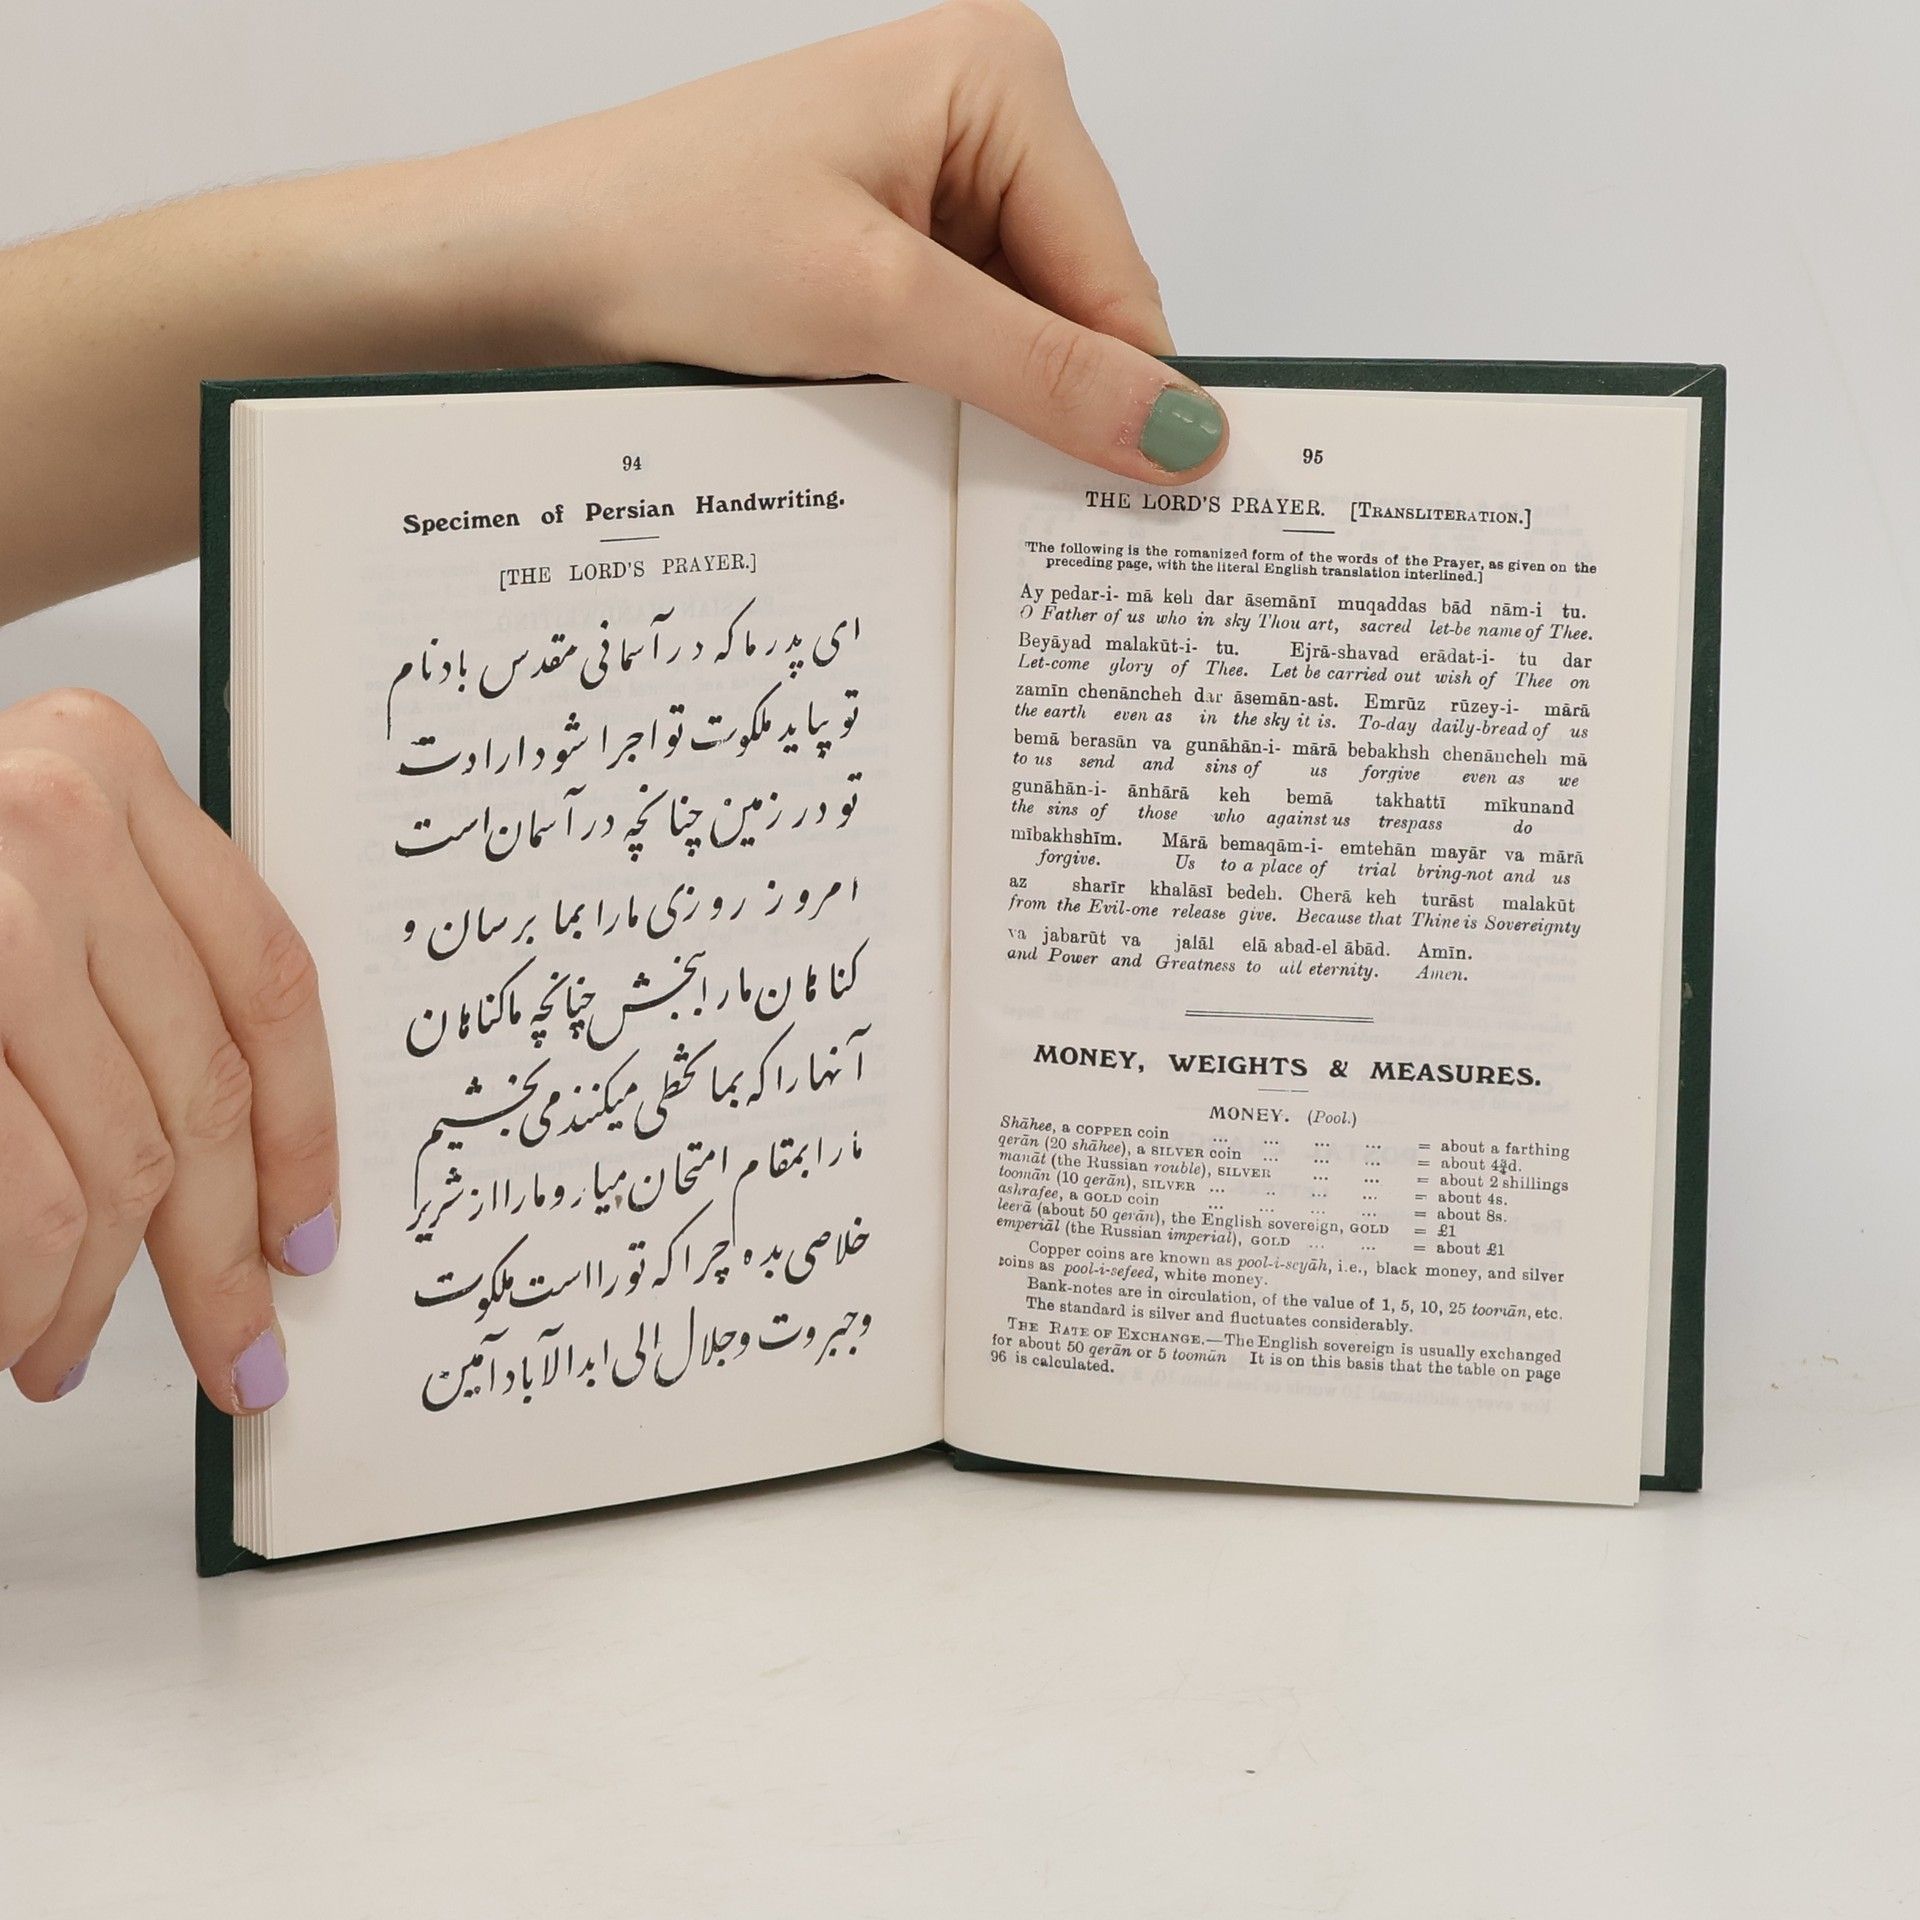 94
Specimen of Persian Handwriting.
[THE LORD'S PRAYER.]
ای پدر ما که در آسمانی مقدس باد نام
تو بیاید ملکوت تو اجرا شود ارادت
تو در زمین چنانچه در آسمان است
امروز روزی مارا بما برسان و
کناهان مارا ببخش چنانچه ما کناهان
آنهارا که بما تخطی میکنند می بخشیم
مارا بمقام امتحان میار و مارا از شریر
خلاصی بده چرا که تورا است ملکوت
و جبروت و جلال الی ابد الآباد آمین
95
THE LORD'S PRAYER. [TRANSLITERATION.]
[The following is the romanized form of the words of the Prayer, as given on the
preceding page, with the literal English translation interlined.]
Ay pedar-i- mā keh dar āsemānī muqaddas bād nām-i tu.
O Father of us who in sky Thou art, sacred let-be name of Thee.
Beyāyad malakūt-i- tu. Ejrā-shavad erādat-i- tu dar
Let-come glory of Thee. Let be carried out wish of Thee on
zamīn chenāncheh dar āsemān-ast. Emrūz rūzey-i- mārā
the earth even as in the sky it is. To-day daily-bread of us
bemā berasān va gunāhān-i- mārā bebakhsh chenāncheh mā
to us send and sins of us forgive even as we
gunāhān-i- ānhārā keh bemā takhattī mīkunand
the sins of those who against us trespass do
mībakhshīm. Mārā bemaqām-i- emtehān mayār va mārā
forgive. Us to a place of trial bring-not and us
az sharīr khalāsī bedeh. Cherā keh turāst malakūt
from the Evil-one release give. Because that Thine is Sovereignty
va jabarūt va jalāl elā abad-el ābād. Amīn.
and Power and Greatness to all eternity. Amen.
MONEY, WEIGHTS & MEASURES.
MONEY. (Pool.)
Shāhee, a COPPER coin ... ... ... ... = about a farthing
qerān (20 shāhee), a SILVER coin ... ... ... ... = about 4¾d.
manāt (the Russian rouble), SILVER ... ... = about 2 shillings
toomān (10 qerān), SILVER ... ... ... ... = about 4s.
ashrafee, a GOLD coin ... ... ... ... = about 8s.
leerā (about 50 qerān), the English sovereign, GOLD = £1
emperiāl (the Russian imperial), GOLD ... ... = about £1
Copper coins are known as pool-i-seyāh, i.e., black money, and silver
coins as pool-i-sefeed, white money.
Bank-notes are in circulation, of the value of 1, 5, 10, 25 toomān, etc.
The standard is silver and fluctuates considerably.
THE RATE OF EXCHANGE.—The English sovereign is usually exchanged
for about 50 qerān or 5 toomān It is on this basis that the table on page
96 is calculated.